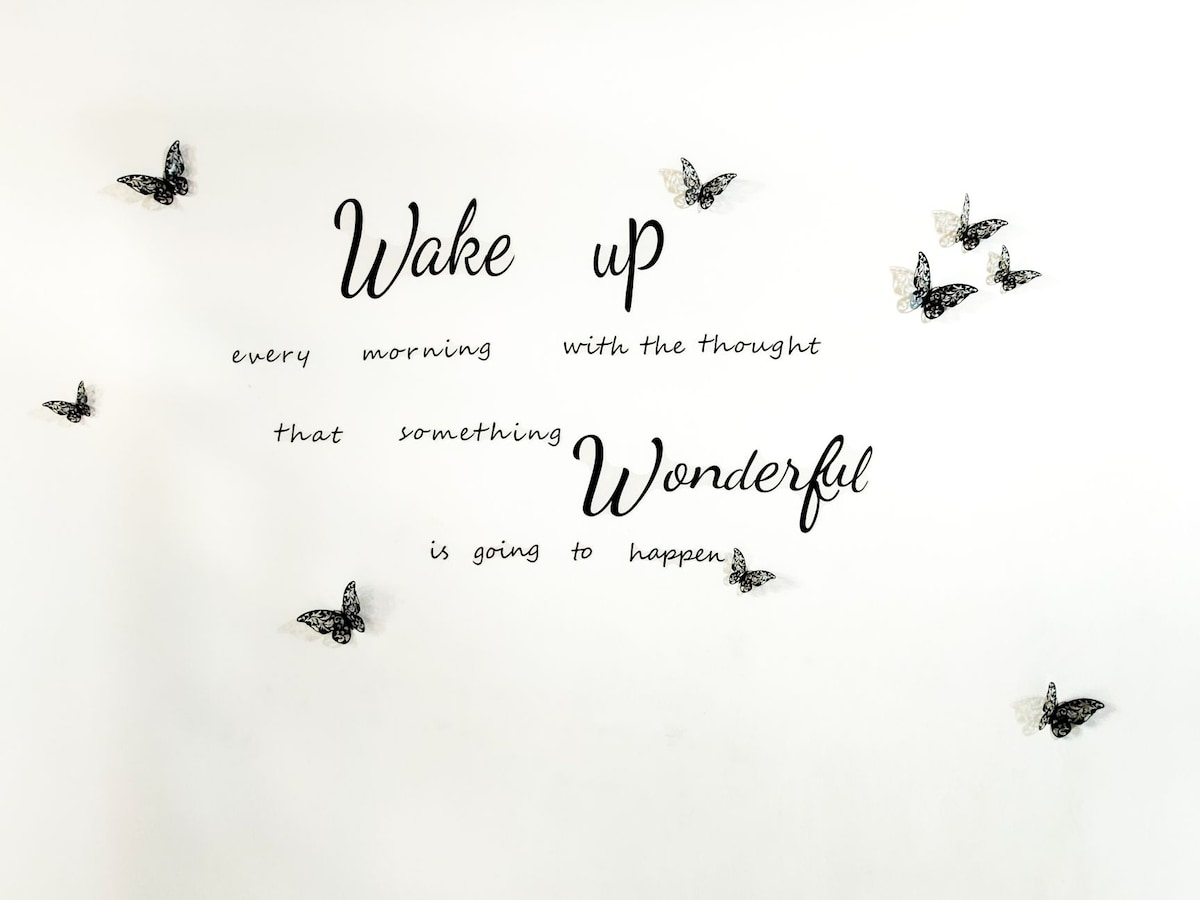 Wake up
every morning with the thought
that something Wonderful
is going to happen